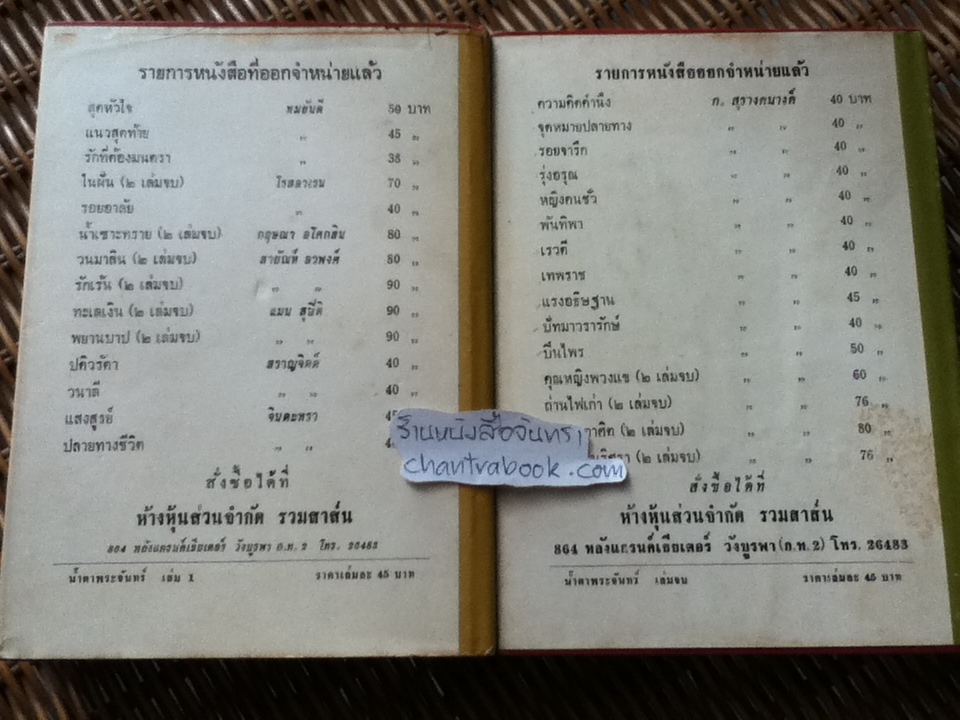 รายการหนังสือที่ออกจำหน่ายแล้ว
สุดหัวใจ ทมยันตี 50 บาท
แนวสุดท้าย " 45 "
รักที่ต้องมนตรา " 35 "
ในฝัน (๒ เล่มจบ) โรสลาเรน 70 "
รอยอาลัย " 40 "
น้ำเซาะทราย (๒ เล่มจบ) กฤษณา อโศกสิน 80 "
วนมาลิน (๒ เล่มจบ) 80 "
รักเร้น (๒ เล่มจบ) " " 90 "
ทะเลเงิน (๒ เล่มจบ) แมน สุปิติ 90 "
พยานบาป (๒ เล่มจบ) " " 90 "
ปดิวรัดา สราญจิตต์ 40 "
วนาลี " 40 "
แสงสูรย์ จินตะหรา
ปลายทางชีวิต " "
สั่งซื้อได้ที่
ห้างหุ้นส่วนจำกัด รวมสาส์น
864 หลังแกรนด์เธียเตอร์ วังบูรพา ก.ท. 2 โทร. 26483
น้ำตาพระจันทร์ เล่ม 1 ราคาเล่มละ 45 บาท
รายการหนังสือออกจำหน่ายแล้ว
ความคิดคำนึง ก. สุรางคนางค์ 40 บาท
จุดหมายปลายทาง " " 40 "
รอยจารึก " " 40 "
รุ่งอรุณ " " 40 "
หญิงคนชั่ว " " 40 "
พันทิพา " " 40 "
เรวดี " " 40 "
เทพราช " " 40 "
แรงอธิษฐาน " " 45 "
ปัทมาวรารักษ์ " " 40 "
ปิ่นไพร " " 50 "
คุณหญิงพวงแข (๒ เล่มจบ) " " 60 "
ถ่านไฟเก่า (๒ เล่มจบ) " " 76 "
(๒ เล่มจบ) " " 80 "
(๒ เล่มจบ) " " 76 "
สั่งซื้อได้ที่
ห้างหุ้นส่วนจำกัด รวมสาส์น
864 หลังแกรนด์เธียเตอร์ วังบูรพา (ก.ท. 2) โทร. 26483
น้ำตาพระจันทร์ เล่มจบ ราคาเล่มละ 45 บาท
ร้านหนังสือจันทรา
chantrabook.com